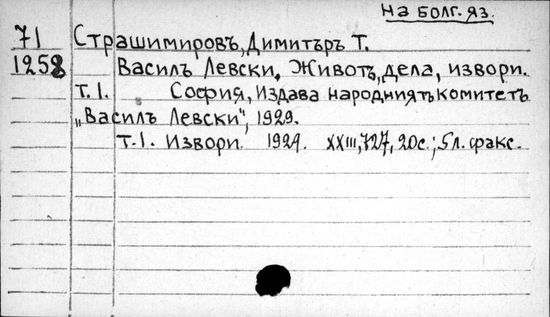 на болг. яз.
71 Страшимировъ, Димитъръ Т.
1258 Василъ Левски, Животъ, дела, извори.
т. 1. София, Издава народниятъ комитетъ
„Василъ Левски", 1929.
т. 1. Извори. 1929. XXIII, 727, 20с.; 5л. факс.